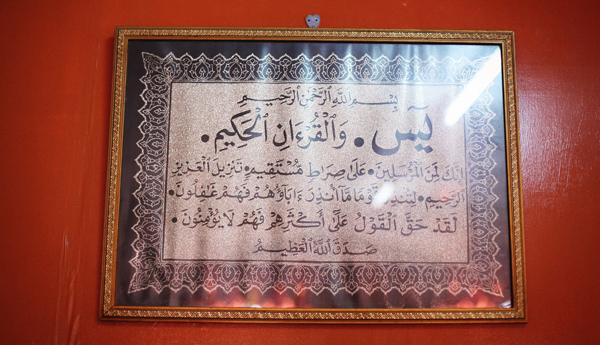 بِسْمِ اللَّهِ الرَّحْمَٰنِ الرَّحِيمِ
يسٓ • وَالْقُرْءَانِ الْحَكِيمِ •
إِنَّكَ لَمِنَ الْمُرْسَلِينَ • عَلَىٰ صِرَاطٍ مُّسْتَقِيمٍ • تَنزِيلَ الْعَزِيزِ
الرَّحِيمِ • لِتُنذِرَ قَوْمًا مَّا أُنذِرَ ءَابَاؤُهُمْ فَهُمْ غَٰفِلُونَ •
لَقَدْ حَقَّ الْقَوْلُ عَلَىٰ أَكْثَرِهِمْ فَهُمْ لَا يُؤْمِنُونَ •
صَدَقَ اللَّهُ الْعَظِيمُ